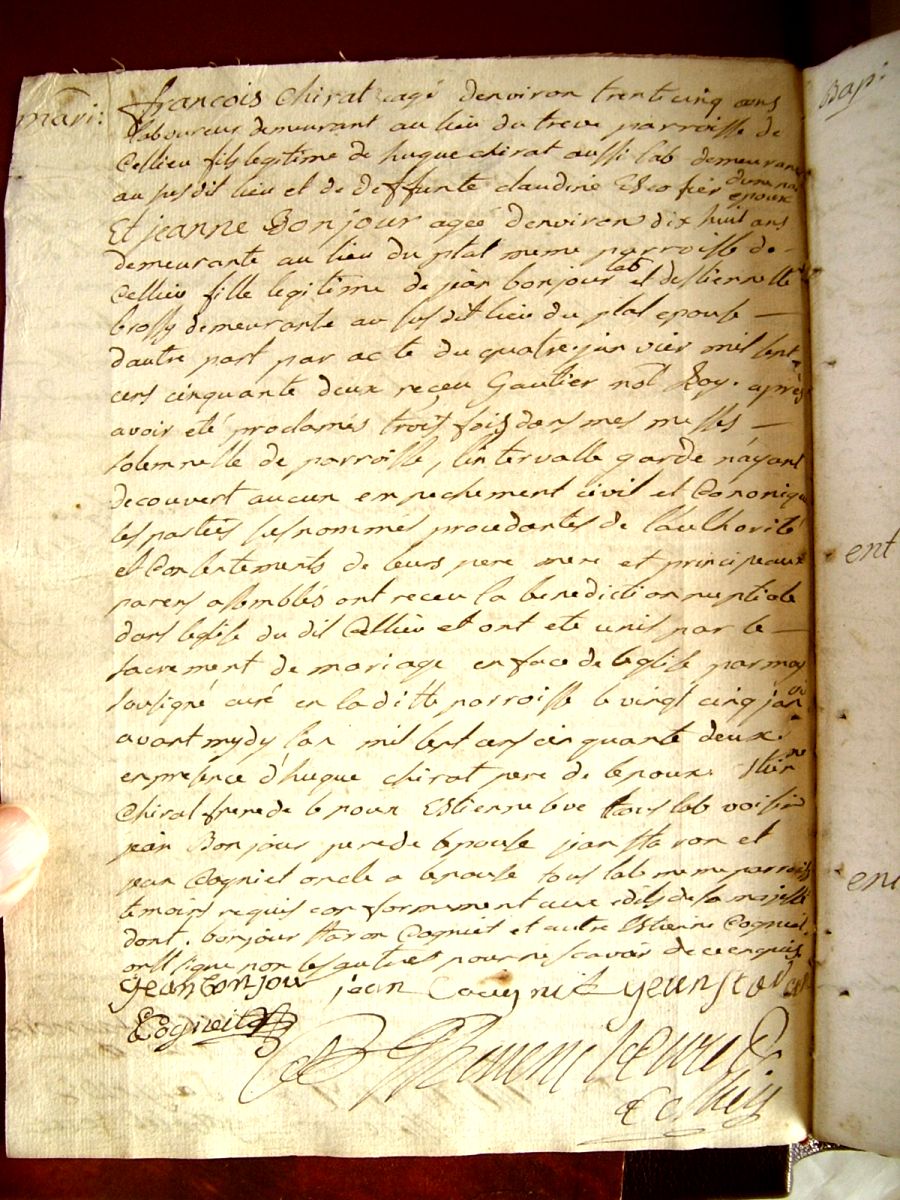 mari:
françois chirat agé denviron trente cinq ans
laboureur demeurant au lieu du treve parroisse de
Cellieu fils legitime de hugue chirat aussi lab demeurant
au susdit lieu et de deffunte claudine Escofier dune part
epoux
Et jeanne Bonjour ageé denviron dix huit ans
demeurante au lieu du plat meme parroisse de
Cellieu fille legitime de jean bonjour lab et destiennette
brossy demeurante au susdit lieu du plat epouse
dautre part par acte du quatre janvier mil sept
cens cinquante deux receu Gautier not Roy. après
avoir eté proclamés trois fois dans mes messes
solemnelle de parroisse, lintervalle gardé nayant
decouvert aucun empechement civil et Canonique
les parties susnommés procedantes de lauthorité
et Consentements de leurs pere mere et principeaux
parens assemblés ont receu la benediction nuptiale
dans leglise du dit Cellieu et ont eté unis par le
sacrement de mariage en face de leglise par moy
sousigné curé en laditte parroisse le vingt cinq janvi
avant mydy lan mil sept cens cinquante deux
en presence d'hugue chirat pere de lepoux
Chirat frere de lepoux Estienne tous lab voisin
jean Bonjour pere de lepouse jean staron et
jean Cogniet oncle a lepouse tous lab meme parroisse
temoins requis conformement aux edits de sa majesté
dont. bonjour staron Cogniet et autre Estienne Cogniet
ont signe non les autres pour ne scavoir de ce enquis
jean bonjour jean Cogniet jean staron
Cogniet
Cellieu